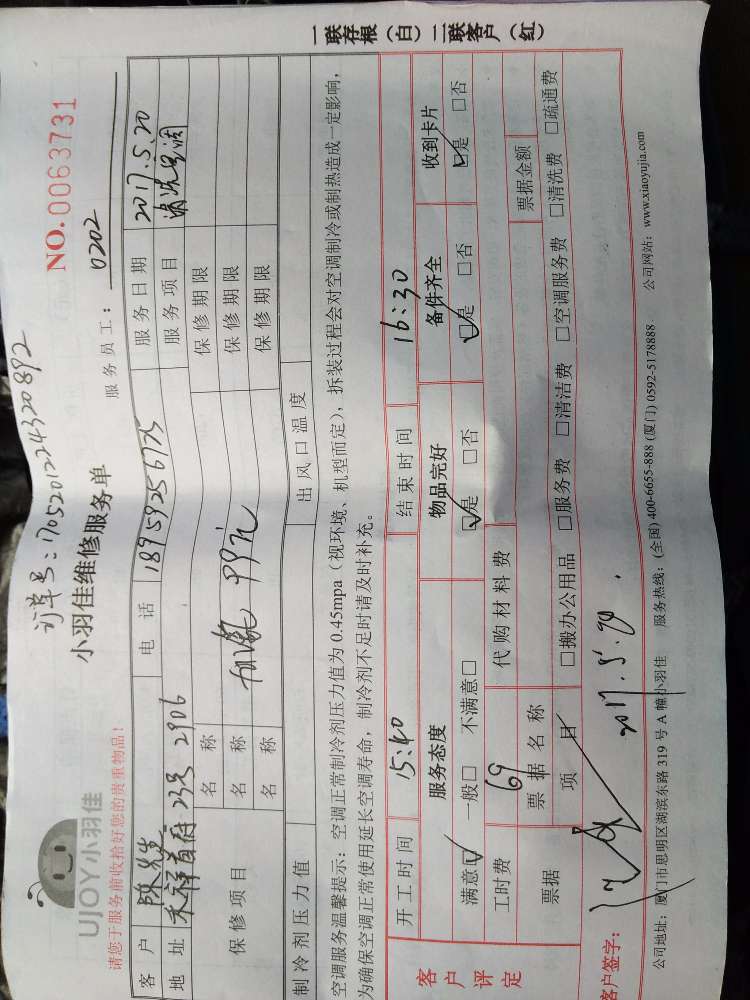 订单号：170520122432０892
UJOY小羽佳
小羽佳维修服务单
NO.0063731
请您于服务前收拾好您的贵重物品！
服务员工： 0202
客户 陈先生 电话 18959256725 服务日期 2017.5.20
地址 禾祥首府23号2906 服务项目 清洗空调
保修项目 名称 保修期限
名称 加氟 99元 保修期限
名称 保修期限
制冷剂压力值 出风口温度
空调服务温馨提示：空调正常制冷剂压力值为0.45mpa（视环境、机型而定），拆装过程会对空调制冷或制热造成一定影响，
为确保空调正常使用延长空调寿命，制冷剂不足时请及时补充。
开工时间 15:40 结束时间 16:30
客户评定
服务态度 物品完好 备件齐全 收到卡片
满意☑ 一般□ 不满意□ ☑是 □否 ☑是 □否 ☑是 □否
工时费 69 代购材料费
票据 票据名称 票据金额
项目 □搬办公用品 □服务费 □清洁费 □空调服务费 □清洗费 □疏通费
客户签字： 2017.5.20.
公司地址：厦门市思明区湖滨东路319号A幢小羽佳 服务热线：(全国) 400-6655-888 (厦门) 0592-5178888 公司网站：www.xiaoyujia.com
一联存根（白）二联客户（红）